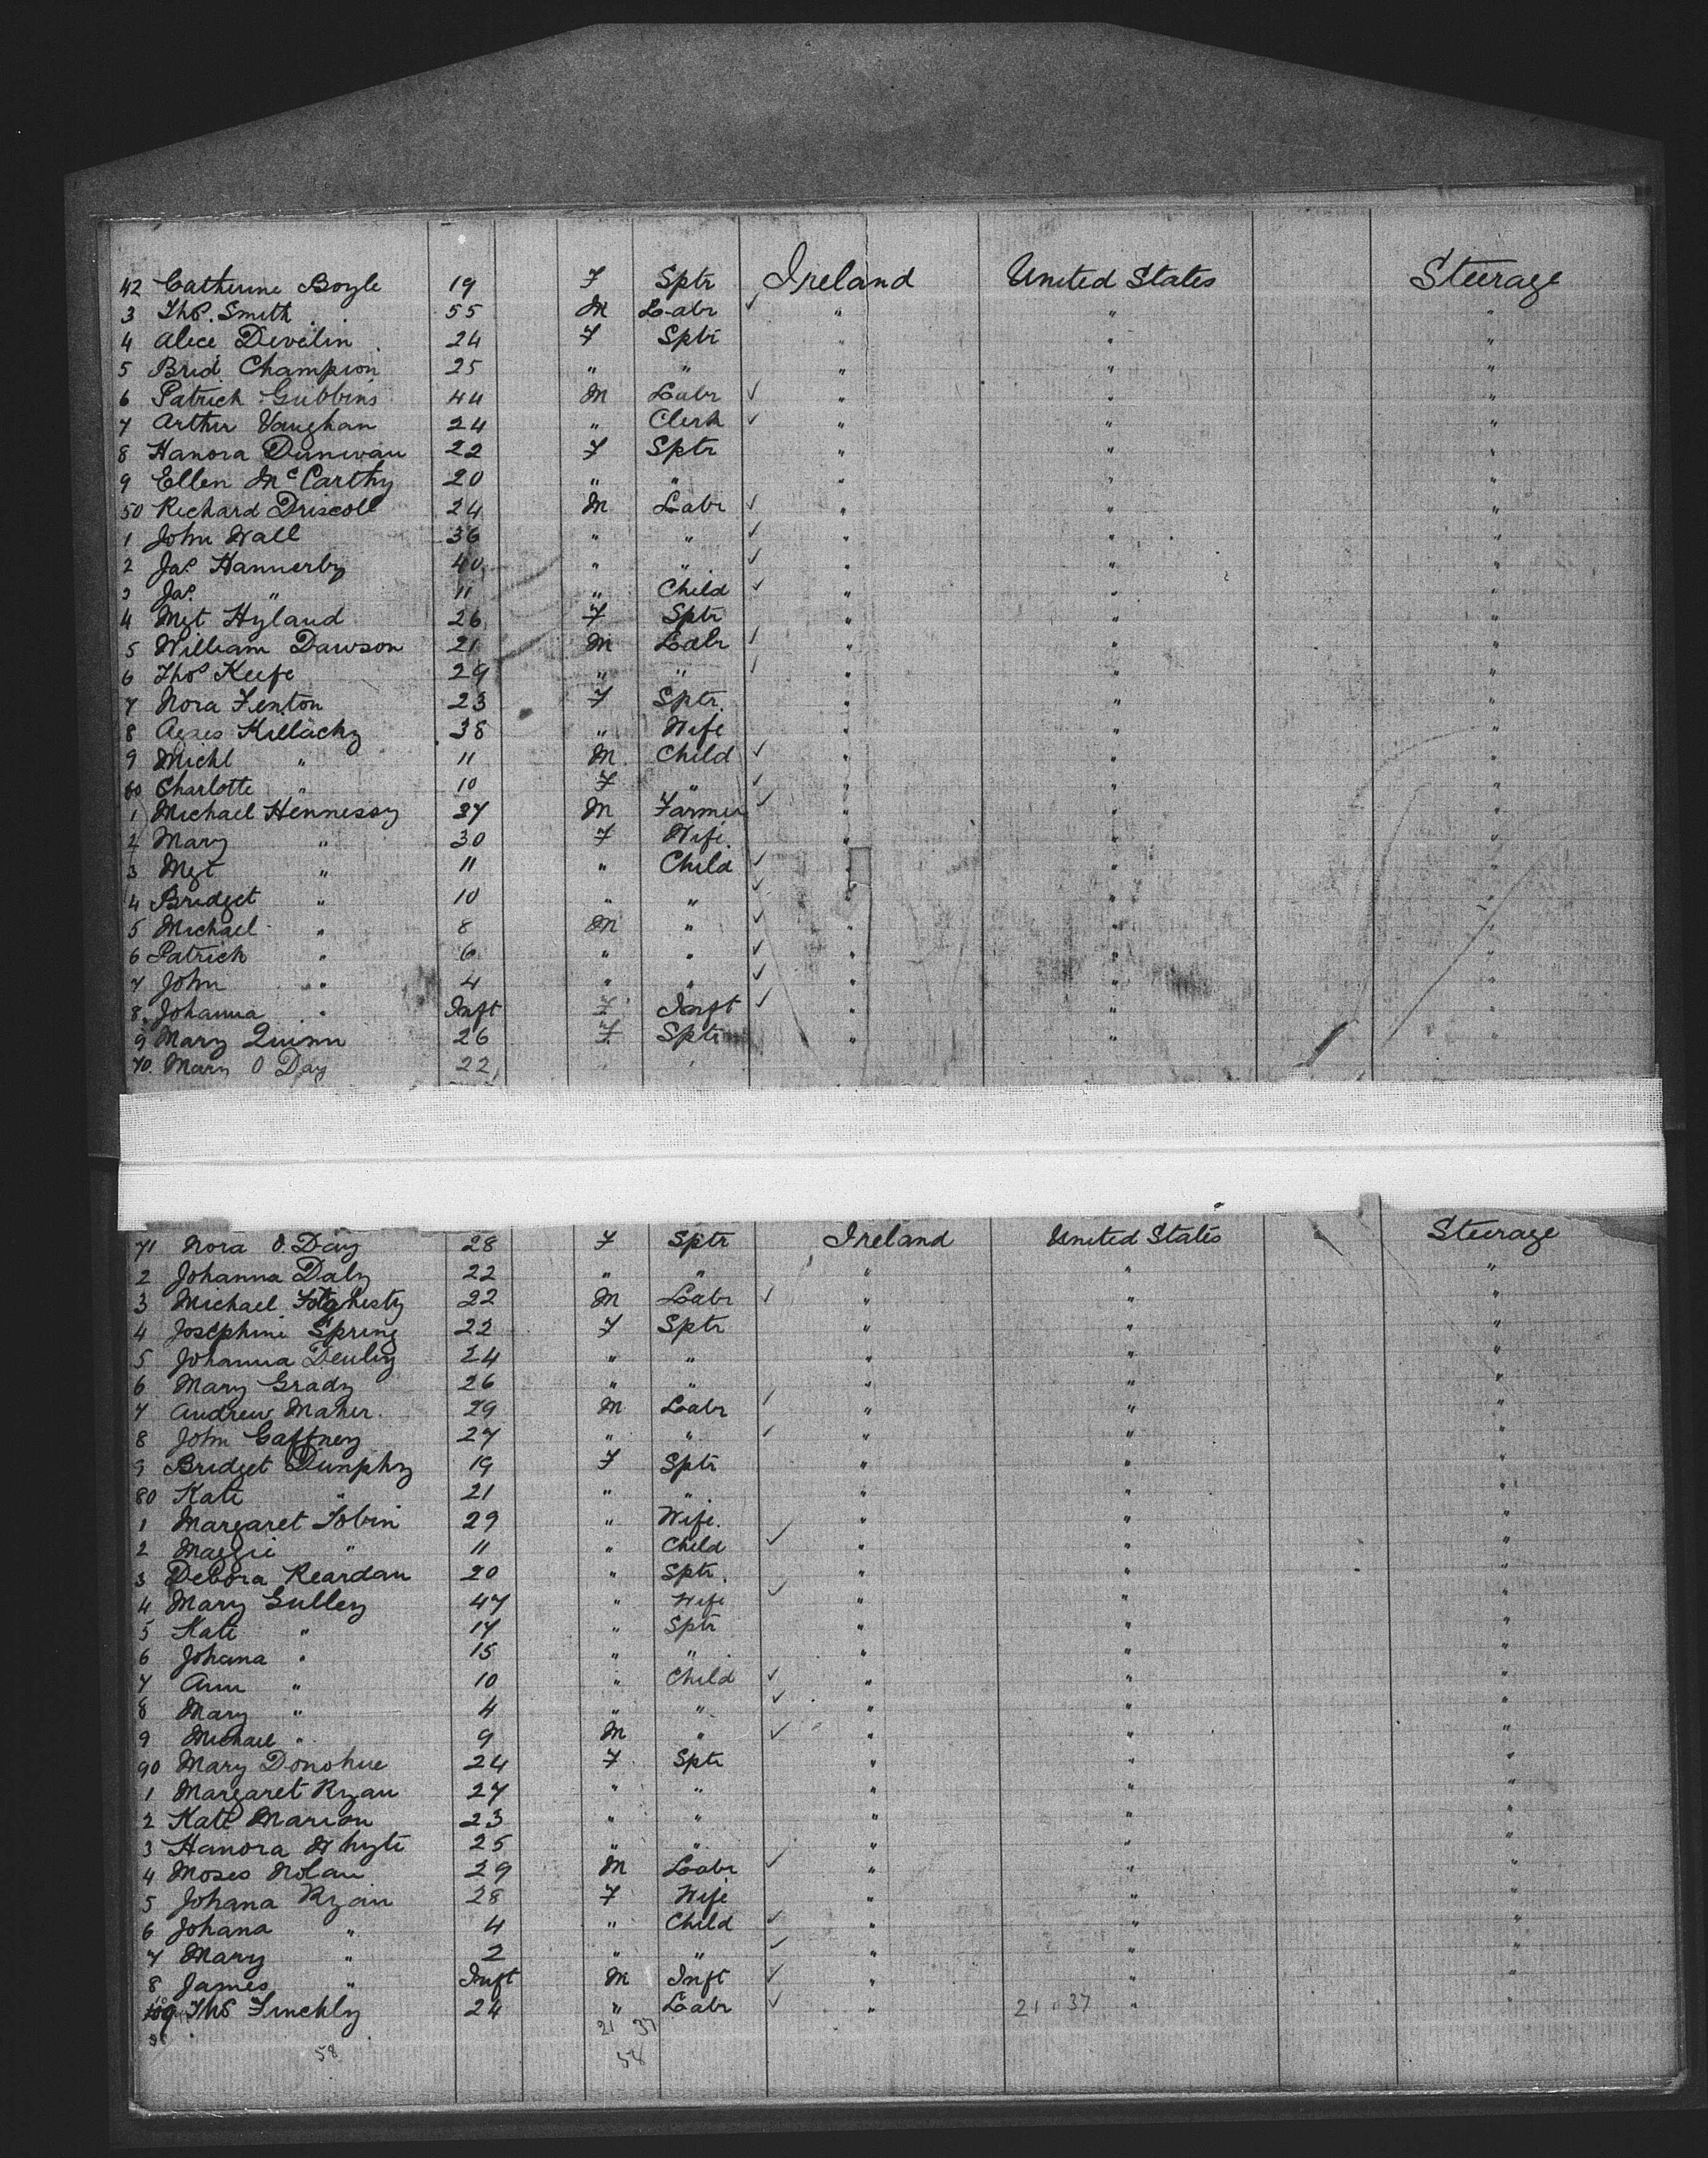 42 Catherine Boyle 19 F Sptr Ireland United States Steerage
3 Thos. Smith 55 M Labr ✓ " " "
4 Alice Develin 24 F Sptr " " "
5 Brid Champion 25 " " " " "
6 Patrick Gubbins 44 M Labr ✓ " " "
7 Arthur Vaughan 24 " Clerk ✓ " " "
8 Hanora Dunivan 22 F Sptr " " "
9 Ellen McCarthy 20 " " " " "
50 Richard Driscoll 24 M Labr ✓ " " "
1 John Wall 36 " " ✓ " " "
2 Jas Hannerby 40 " " ✓ " " "
3 Jas. " 11 " Child ✓ " " "
4 Mgt Hyland 26 F Sptr " " "
5 William Dawson 21 M Labr ✓ " " "
6 Thos Keefe 29 " " ✓ " " "
7 Nora Fenton 23 F Sptr. " " "
8 Agnes Killacky 38 " Wife " " "
9 Michl " 11 M Child ✓ " " "
60 Charlotte " 10 F " ✓ " " "
1 Michael Hennessy 37 M Farmer ✓ " " "
2 Mary " 30 F Wife. " " "
3 Mgt " 11 " Child ✓ " " "
4 Bridget " 10 " " ✓ " " "
5 Michael " 8 M " ✓ " " "
6 Patrick " 6 " " ✓ " " "
7 John " 4 " " ✓ " " "
8. Johanna " Inft F Inft ✓ " " "
9 Mary Quinn 26 F Sptr " " "
70. Mary O Day 22 " "
71 Nora O. Day 28 F Sptr Ireland United States Steerage
2 Johanna Daly 22 " " " " "
3 Michael 22 M Labr ✓ " " "
4 Josephine Spring 22 F Sptr " " "
5 Johanna 24 " " " " "
6 Mary Grady 26 " " " " "
7 Andrew Maher. 29 M Labr ✓ " " "
8 John Gaffney 27 " " ✓ " " "
9 Bridget Dunphy 19 F Sptr " " "
80 Kate " 21 " " " " "
1 Margaret Tobin 29 " Wife. " " "
2 Maggie " 11 " Child ✓ " " "
3 Debora Reardan 20 " Sptr. " " "
4 Mary Gulley 47 " Wife ✓ " " "
5 Kate " 17 " Sptr " " "
6 Johana " 15 " " " " "
7 Ann " 10 " Child ✓ " " "
8 Mary " 4 " " ✓ " " "
9 Michael " 9 M " ✓ " " "
90 Mary Donohue 24 F Sptr " " "
1 Margaret Ryan 27 " " " " "
2 Kate Marion 23 " " " " "
3 Hanora Whyte 25 " " " " "
4 Moses Nolan 29 M Labr ✓ " " "
5 Johana Ryan 28 F Wife " " "
6 Johana " 4 " Child ✓ " " "
7 Mary " 2 " " ✓ " " "
8 James " Inft M Inft ✓ " " "
9 Thos Finchly 24 " Labr ✓ " 21 37 " "
21 37
58 58